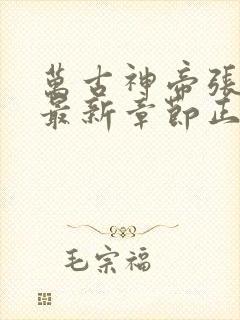 萬古神帝張
最新章節正
毛宗福